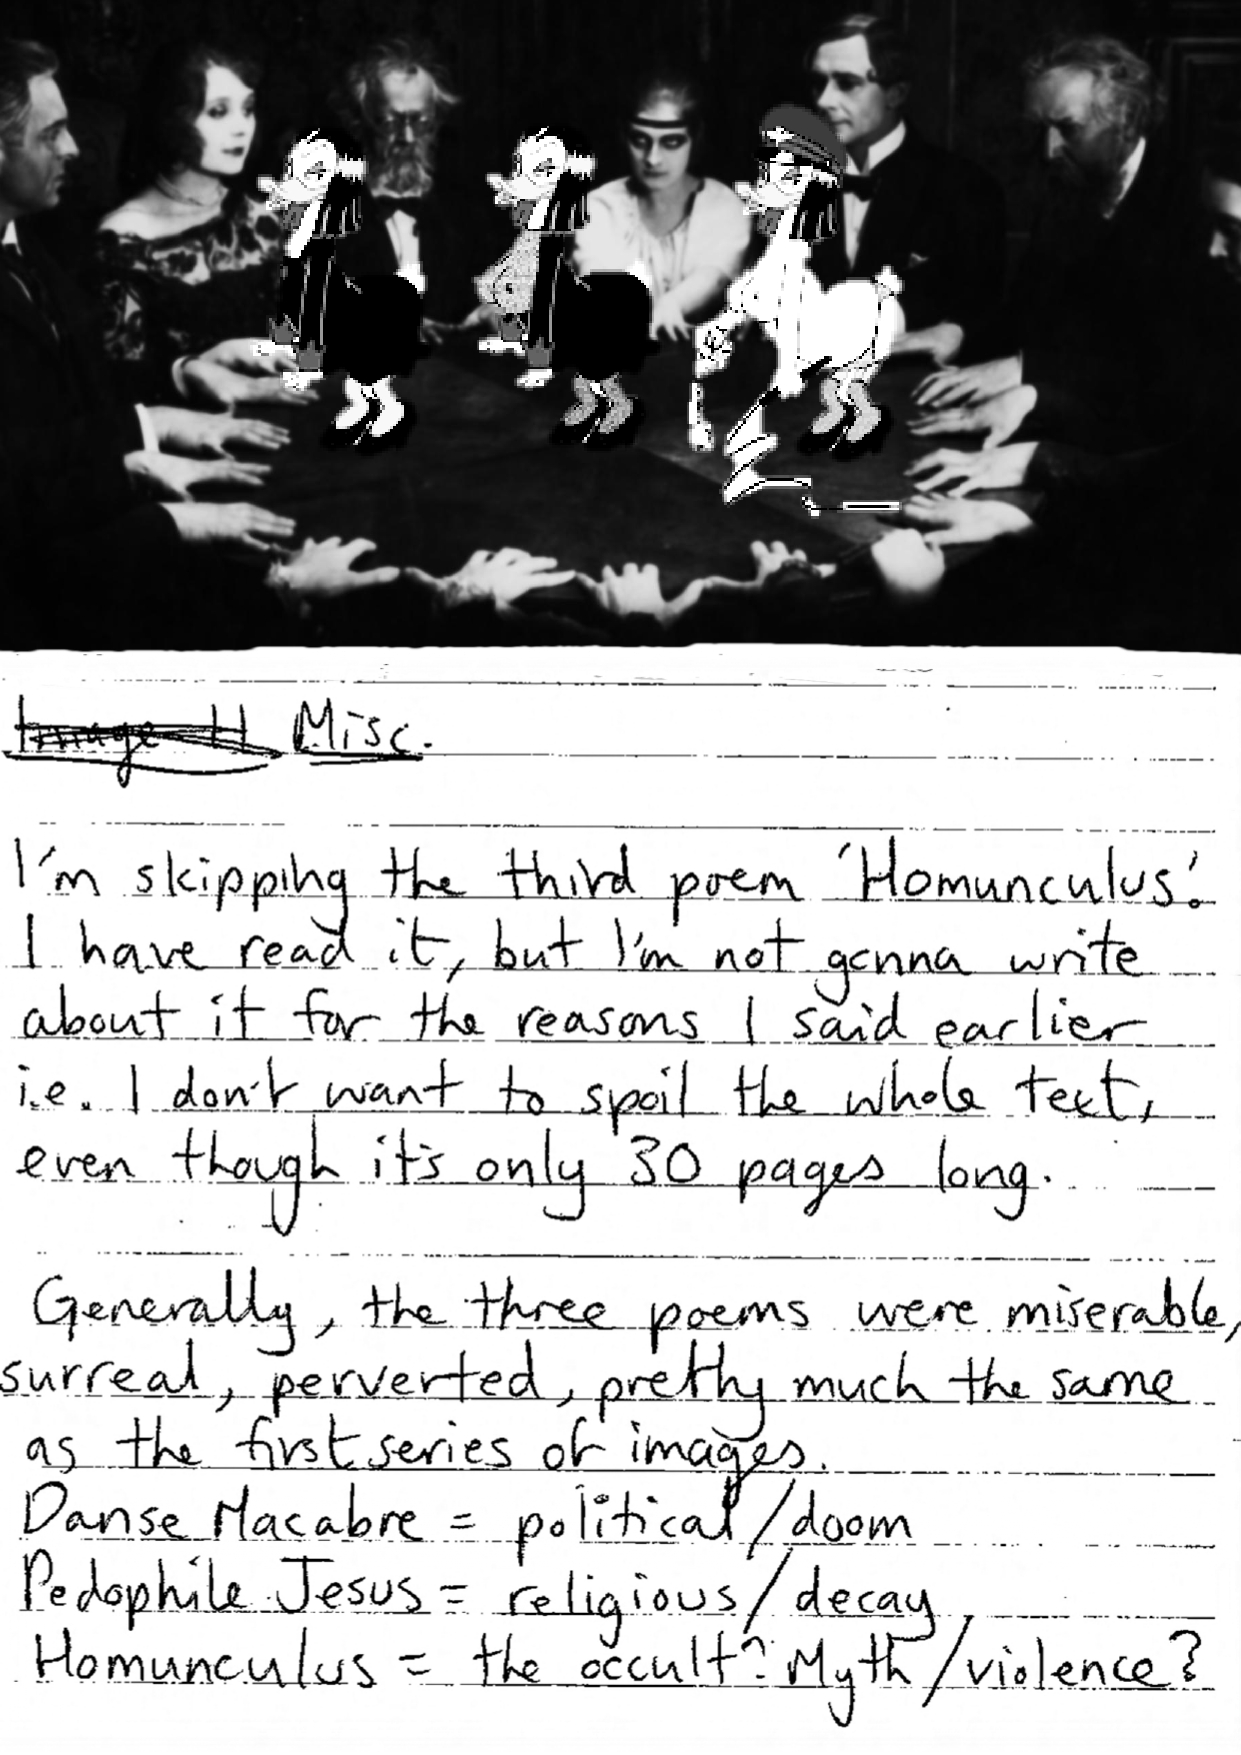 Image H Misc.
I'm skipping the third poem 'Homunculus'.
I have read it, but I'm not gonna write
about it for the reasons I said earlier
i.e. I don't want to spoil the whole text,
even though it's only 30 pages long.
Generally, the three poems were miserable,
surreal, perverted, pretty much the same
as the first series of images.
Danse Macabre = political/doom
Pedophile Jesus = religious/decay
Homunculus = the occult? Myth/violence?